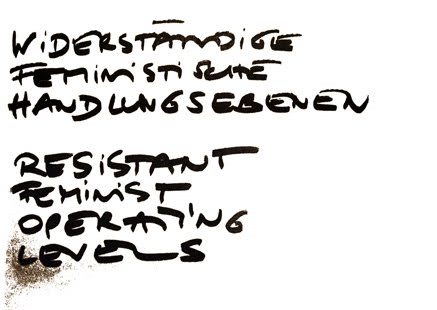 WiDERSTÄNDiGE
FEMiNiSTiSCHE
HANDLUNGSEBENEN
RESiSTANT
FEMiNiST
OPERATiNG
LEVELS